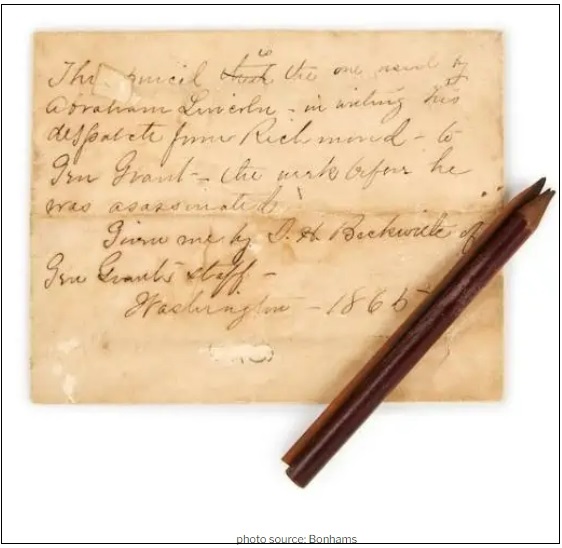 This pencil is the one used by
Abraham Lincoln - in writing his
despatch from Richmond - to
Gen Grant - the week before he
was assassinated
Given me by S. H. Beckwith of
Gen Grant's staff -
Washington - 1865
photo source: Bonhams